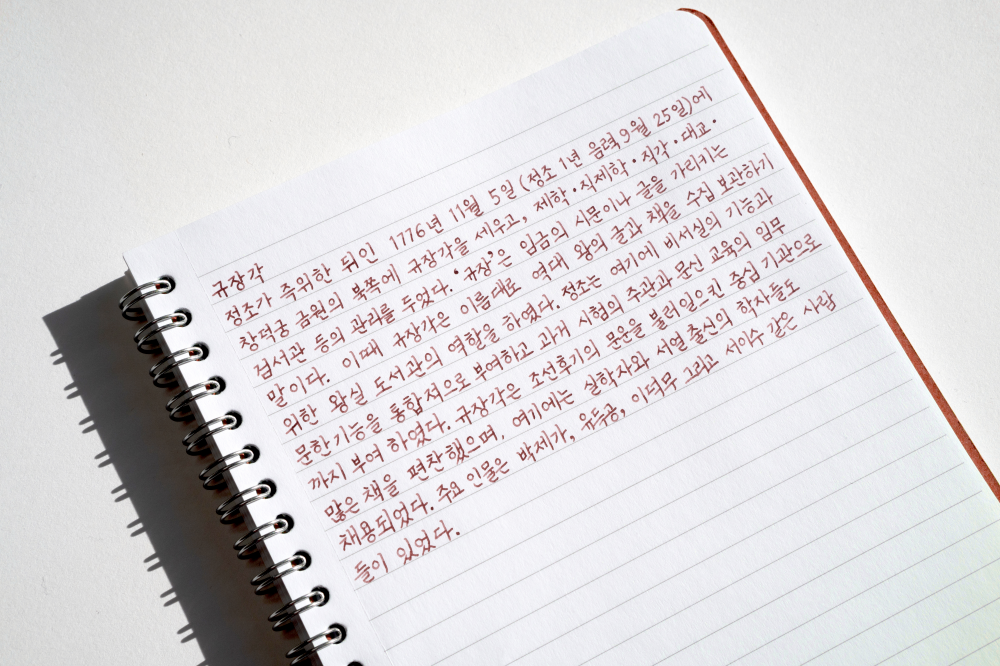 규장각
정조가 즉위한 뒤인 1776년 11월 5일 (정조 1년 음력 9월 25일)에
창덕궁 금원의 북쪽에 규장각을 세우고, 제학·직제학·직각·대교·
검서관 등의 관리를 두었다. '규장'은 임금의 시문이나 글을 가리키는
말이다. 이때 규장각은 이름대로 역대 왕의 글과 책을 수집 보관하기
위한 왕실 도서관의 역할을 하였다. 정조는 여기에 비서실의 기능과
문한기능을 통합적으로 부여하고 과거 시험의 주관과 문신 교육의 임무
까지 부여 하였다. 규장각은 조선후기의 문운을 불러일으킨 중심 기관으로
많은 책을 편찬했으며, 여기에는 실학자와 서얼 출신의 학자들도
채용되었다. 주요 인물은 박제가, 유득공, 이덕무 그리고 서이수 같은 사람
들이 있었다.